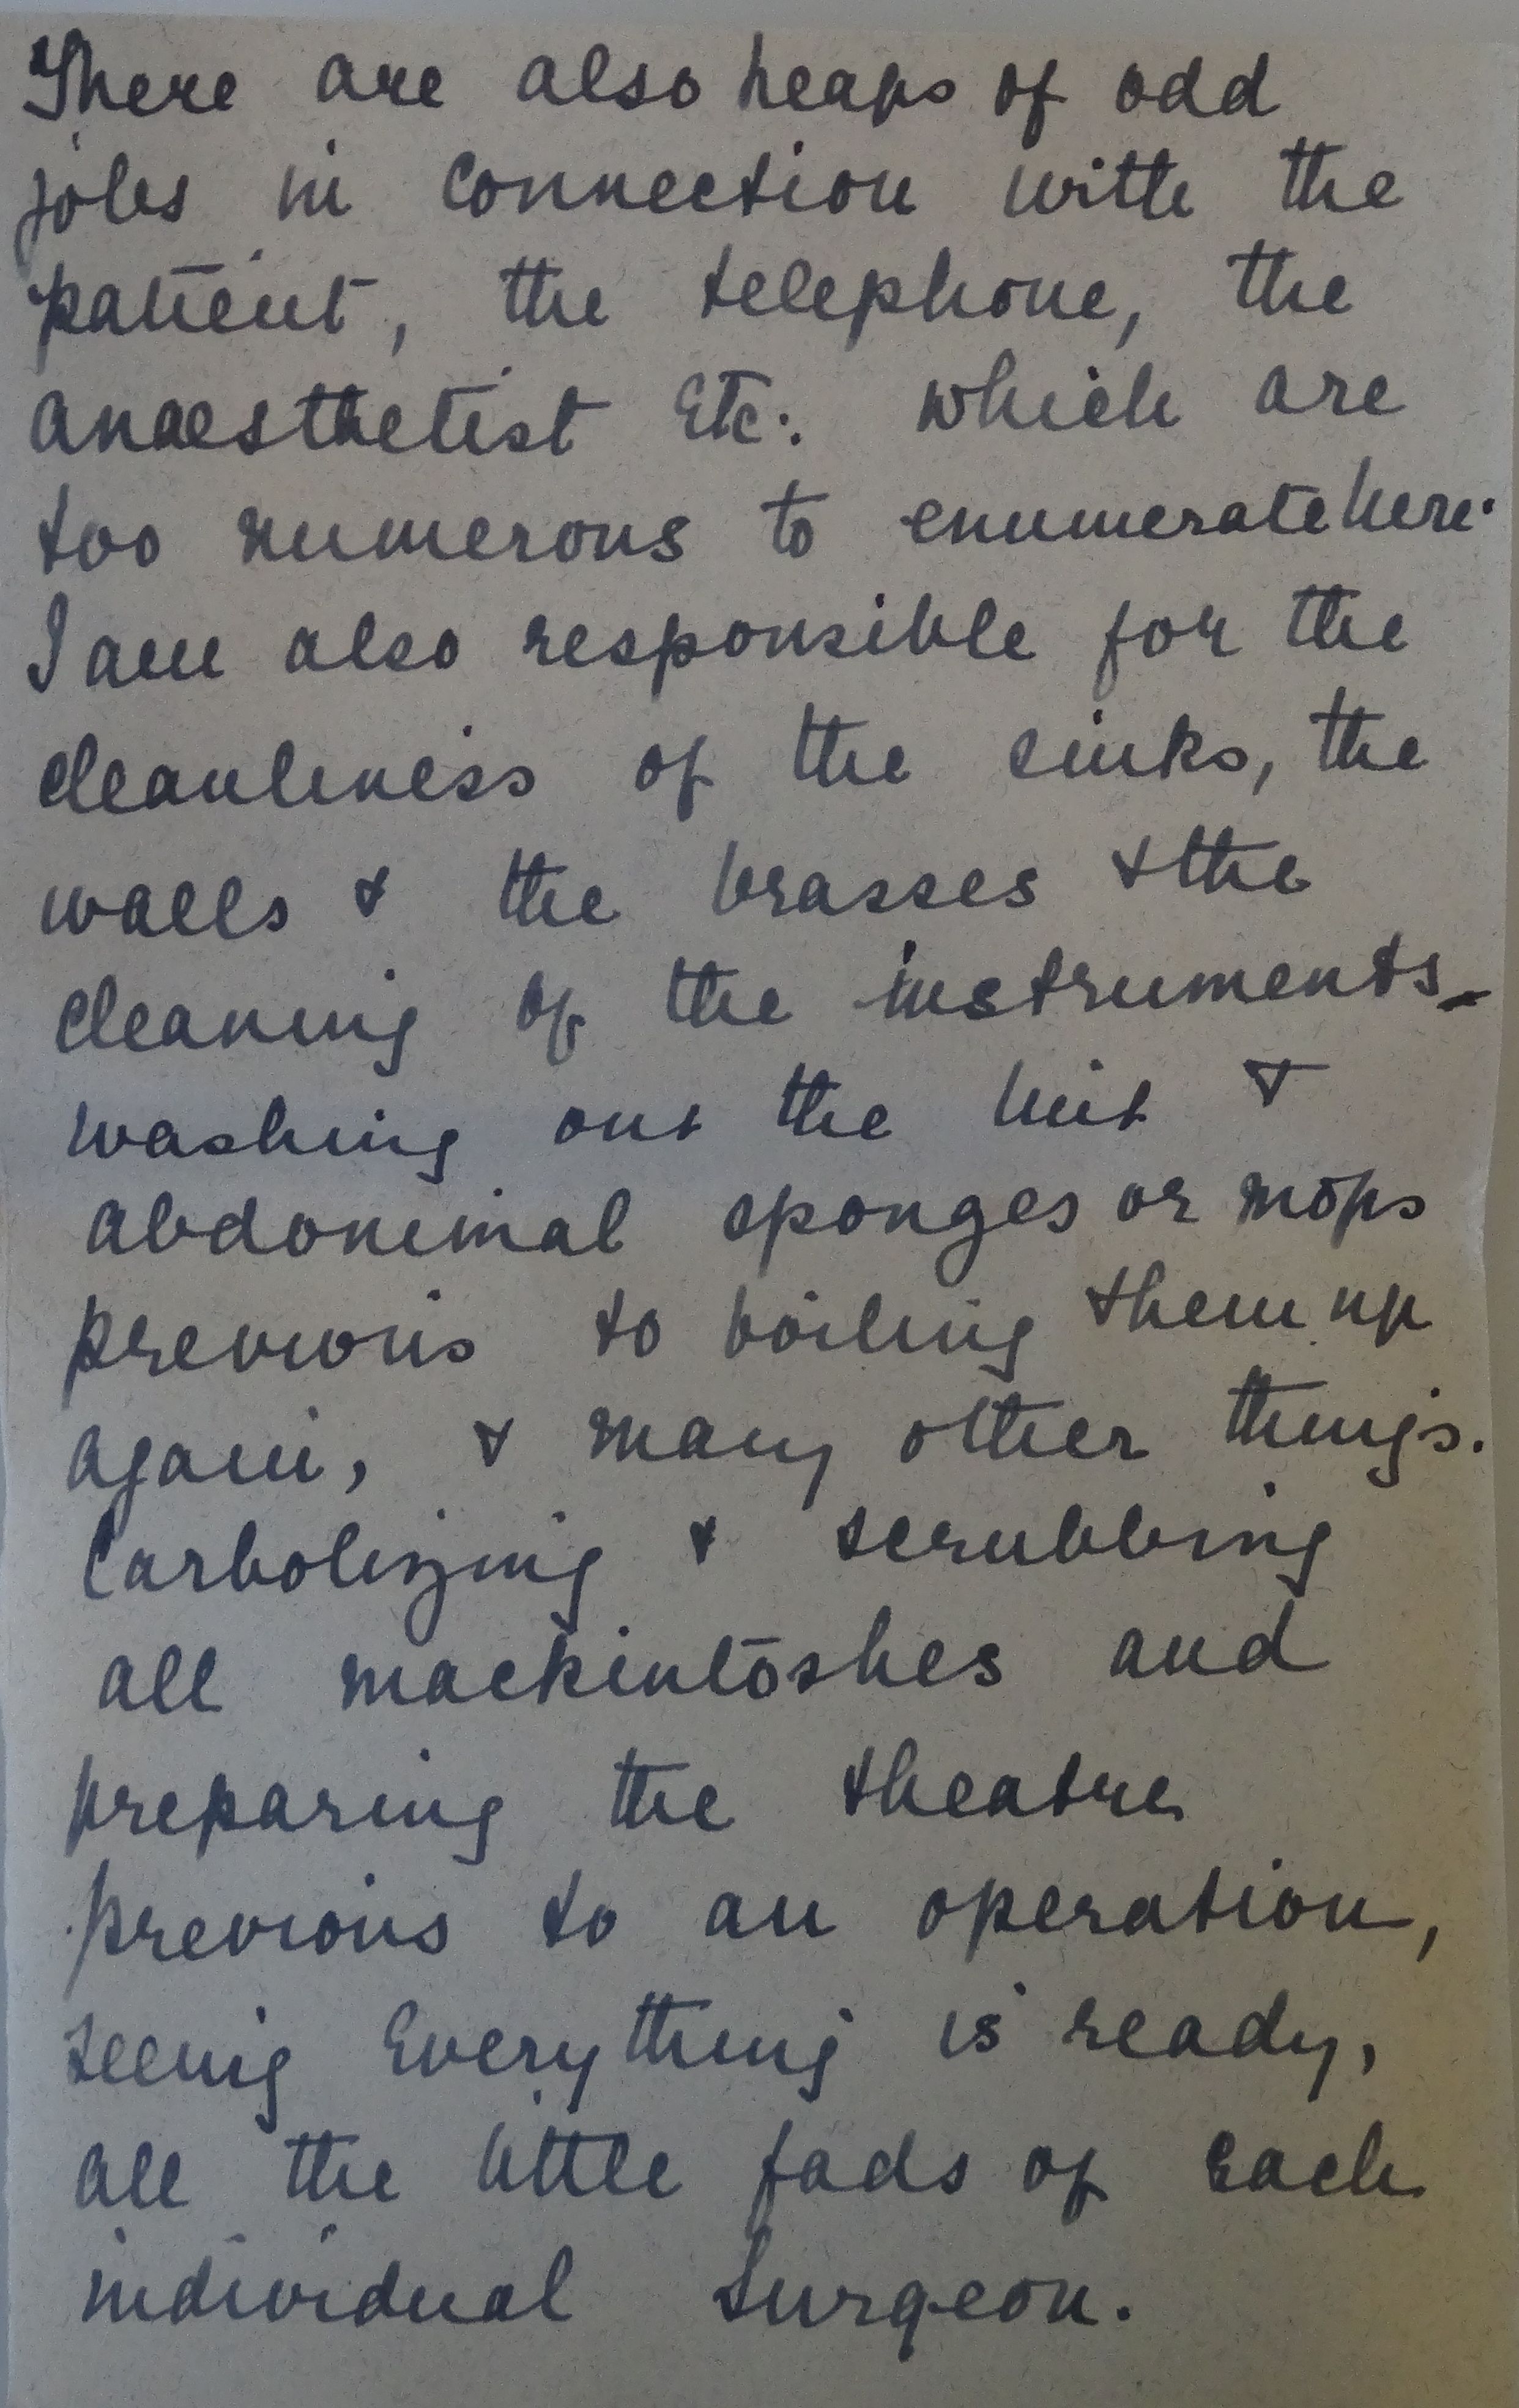 There are also heaps of odd
jobs in connection with the
patient, the telephone, the
anaesthetist Etc. which are
too numerous to enumerate here.
I am also responsible for the
cleanliness of the sinks, the
walls & the brasses & the
cleaning of the instruments -
washing out the lint &
abdominal sponges or mops
previous to boiling them up
again, & many other things.
Carbolizing & scrubbing
all mackintoshes and
preparing the theatre
previous to an operation,
seeing Everything is ready,
all the little fads of Each
individual Surgeon.